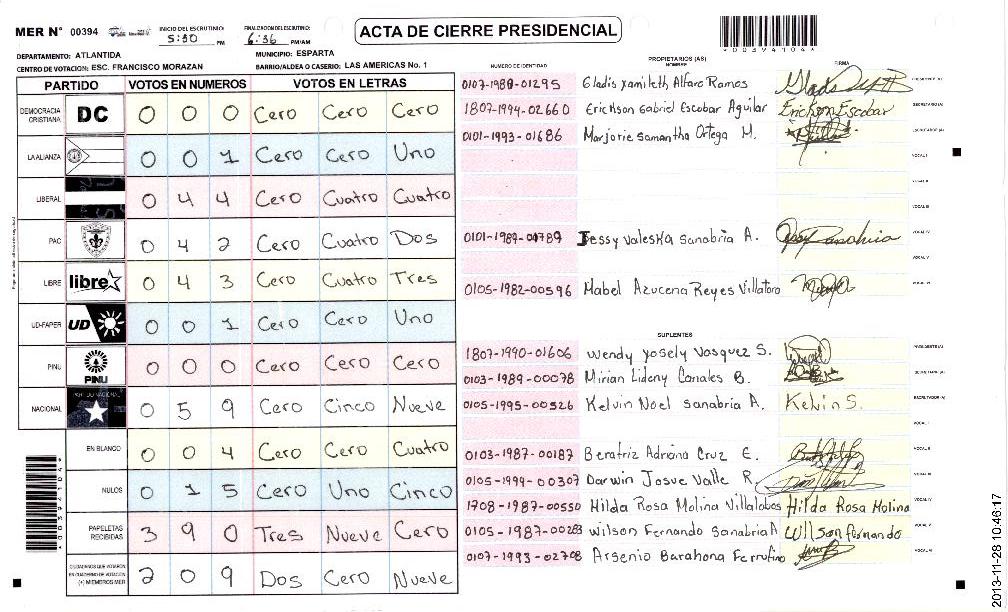 MER N° 00394 INICIO DEL ESCRUTINIO: 5:30 PM FINALIZACION DEL ESCRUTINIO: 6:36 PM/AM
ACTA DE CIERRE PRESIDENCIAL
DEPARTAMENTO: ATLANTIDA MUNICIPIO: ESPARTA
CENTRO DE VOTACION: ESC. FRANCISCO MORAZAN BARRIO/ALDEA O CASERIO: LAS AMERICAS No. 1
PARTIDO VOTOS EN NUMEROS VOTOS EN LETRAS
DEMOCRACIA CRISTIANA DC 0 0 0 Cero Cero Cero
LA ALIANZA 0 0 1 Cero Cero Uno
LIBERAL 0 4 4 Cero Cuatro Cuatro
PAC 0 4 2 Cero Cuatro Dos
LIBRE libre 0 4 3 Cero Cuatro Tres
UD-FAPER UD 0 0 1 Cero Cero Uno
PINU PINU 0 0 0 Cero Cero Cero
NACIONAL 0 5 9 Cero Cinco Nueve
EN BLANCO 0 0 4 Cero Cero Cuatro
NULOS 0 1 5 Cero Uno Cinco
PAPELETAS RECIBIDAS 3 9 0 Tres Nueve Cero
CIUDADANOS QUE VOTARON EN CUADERNO DE VOTACION (+) MIEMBROS MER 2 0 9 Dos Cero Nueve
NUMERO DE IDENTIDAD PROPIETARIOS (AS) FIRMA
0107-1988-01295 Gladis Yamileth Alfaro Ramos
1807-1994-02660 Erickson Gabriel Escobar Aguilar Erickson Escobar SECRETARIO(A)
0101-1993-01686 Marjorie Samantha Ortega M. ESCRUTADOR (A)
VOCAL I
VOCAL II
VOCAL III
0101-1989-00789 Jessy Valeska Sanabria A. VOCAL IV
VOCAL V
0105-1982-00596 Mabel Azucena Reyes Villatoro VOCAL VI
SUPLENTES
1807-1990-01606 Wendy Yosely Vasquez S. PRESIDENTE(A)
0103-1989-00078 Mirian Lideny Canales B. SECRETARIO(A)
0105-1995-00526 Kelvin Noel Sanabria A. Kelvin S. ESCRUTADOR (A)
VOCAL I
0103-1987-00187 Beratriz Adriana Cruz E. VOCAL II
0105-1999-00307 Darwin Josue Valle R. VOCAL III
1708-1987-00550 Hilda Rosa Molina Villalobos Hilda Rosa Molina VOCAL IV
0105-1987-00283 Wilson Fernando Sanabria A Wilson fernando VOCAL V
0107-1993-02708 Arsenio Barahona Ferrufino VOCAL VI
2013-11-28 10:46:17